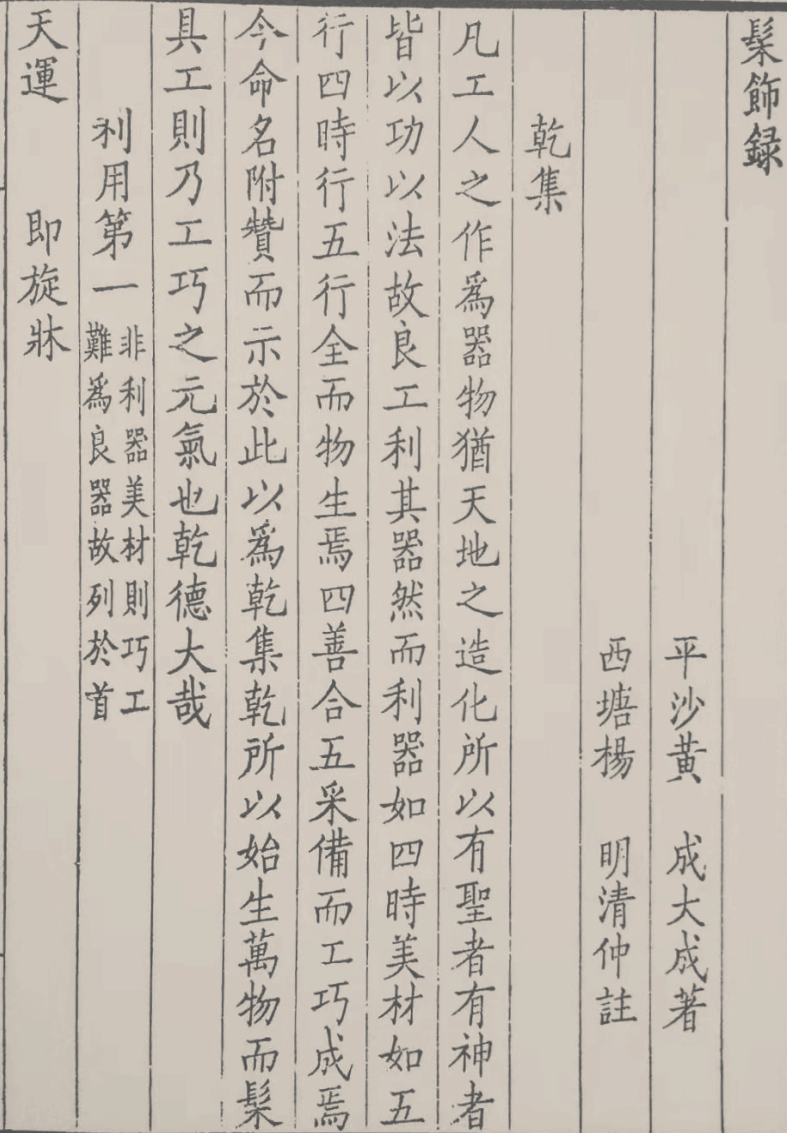 髹飾録
平沙黄　成大成著
西塘楊　明清仲註
乾集
凡工人之作爲器物猶天地之造化所以有聖者有神者
皆以功以法故良工利其器然而利器如四時美材如五
行四時行五行全而物生焉四善合五采備而工巧成焉
今命名附贊而示於此以爲乾集乾所以始生萬物而髹
具工則乃工巧之元氣也乾德大哉
利用第一
非利器美材則巧工
難爲良器故列於首
天運　即旋牀